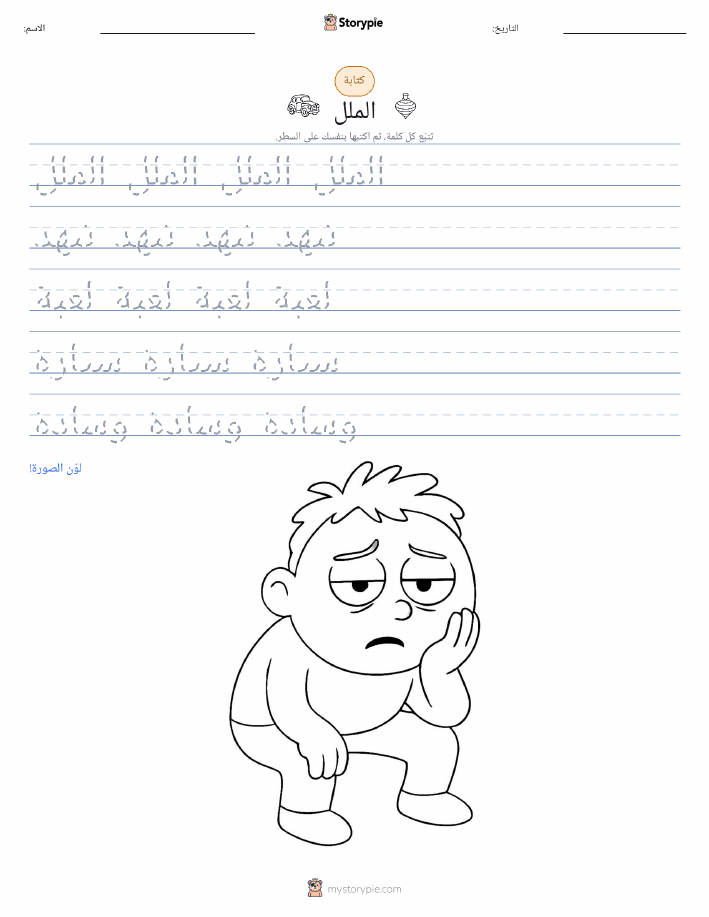 الاسم:
Storypie
التاريخ:
كتابة
الملل
تتبّع كل كلمة، ثم اكتبها بنفسك على السطر.
الملل الملل الملل الملل
تنهّد. تنهّد. تنهّد. تنهّد.
لعبة لعبة لعبة لعبة
سيارة سيارة سيارة
وسادة وسادة وسادة
لوّن الصورة!
mystorypie.com